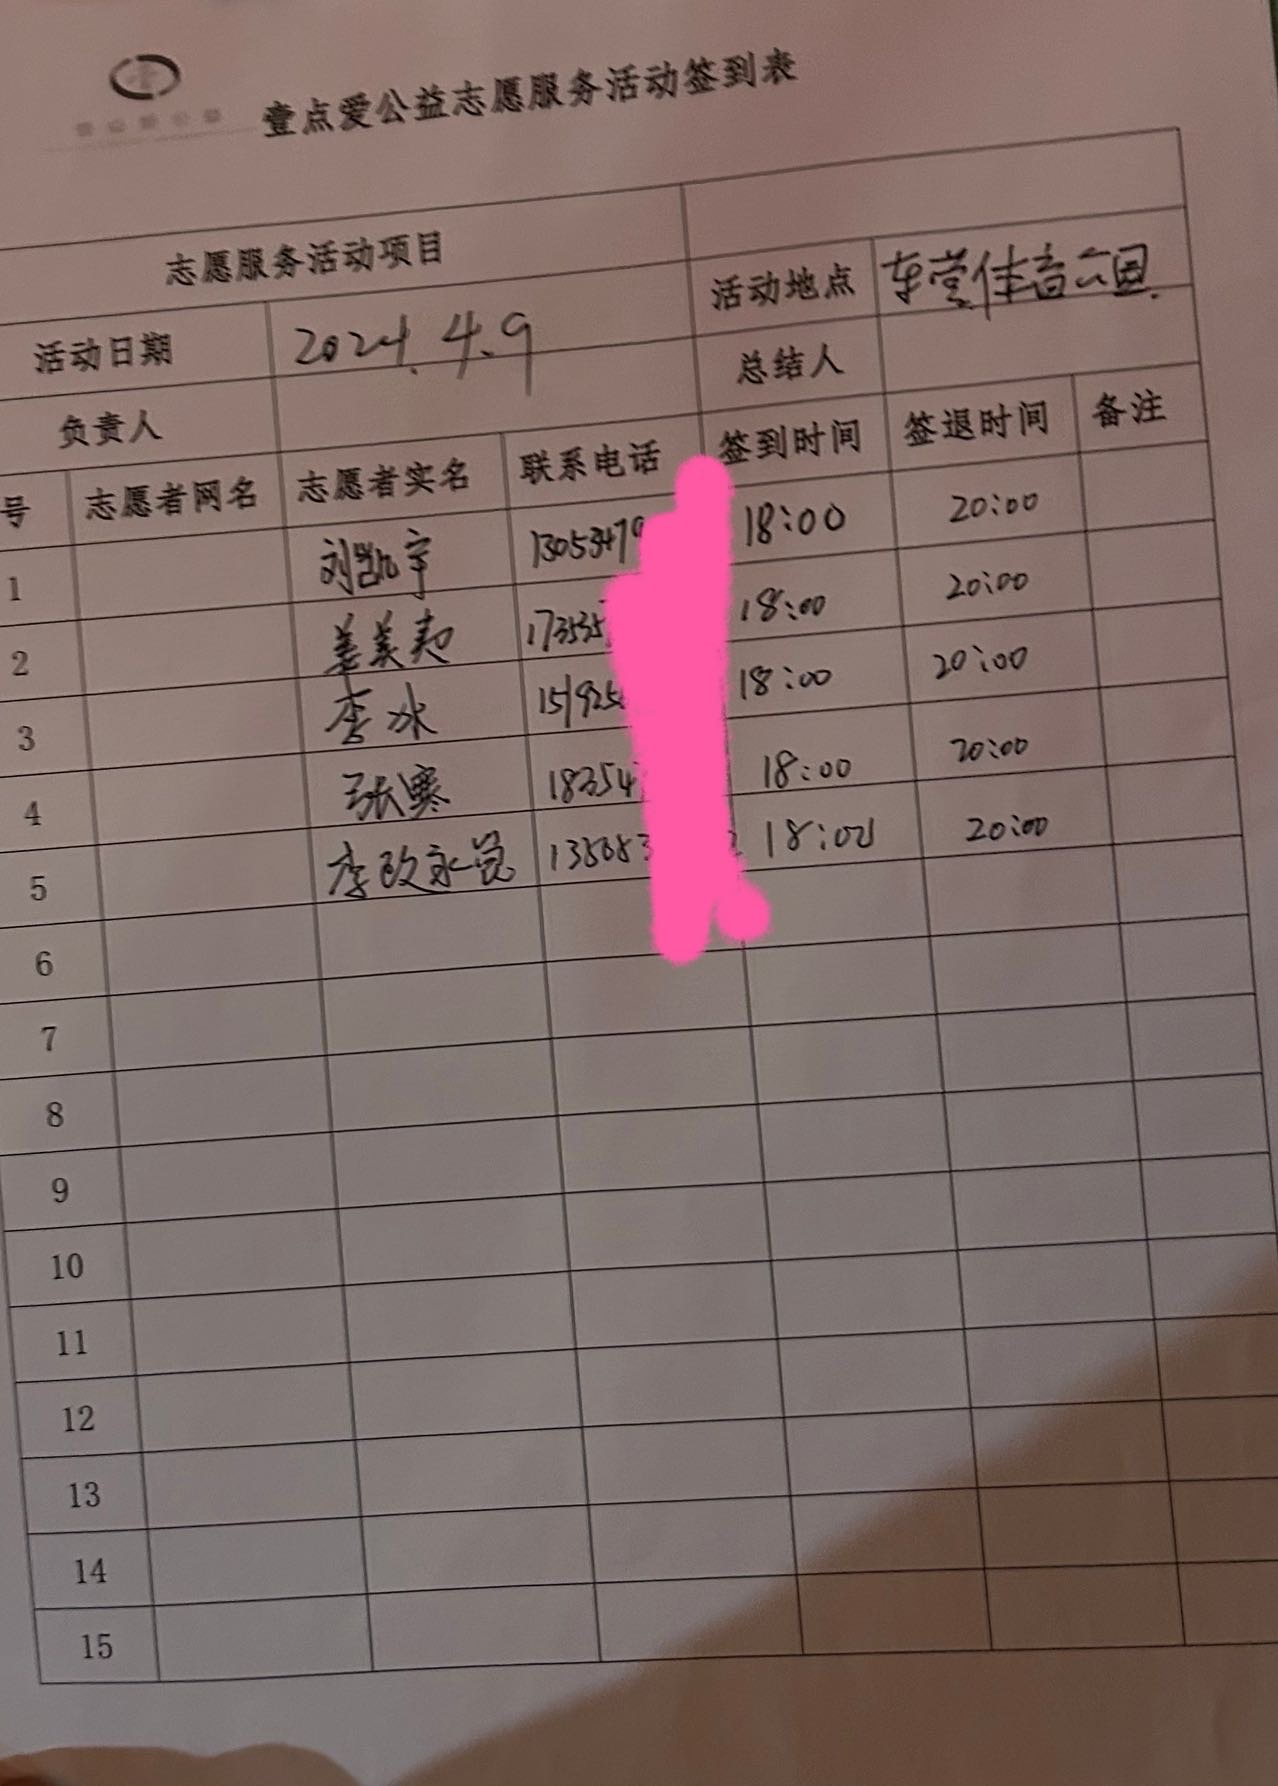 壹点爱公益志愿服务活动签到表
志愿服务活动项目
活动日期 2024.4.9 活动地点 车营体育公园
负责人 总结人
号 志愿者网名 志愿者实名 联系电话 签到时间 签退时间 备注
1 刘凯宇 13053479 18:00 20:00
2 姜美 17353 18:00 20:00
3 李冰 15192 18:00 20:00
4 张寒 18354 18:00 20:00
5 李 13568 18:00 20:00
6
7
8
9
10
11
12
13
14
15